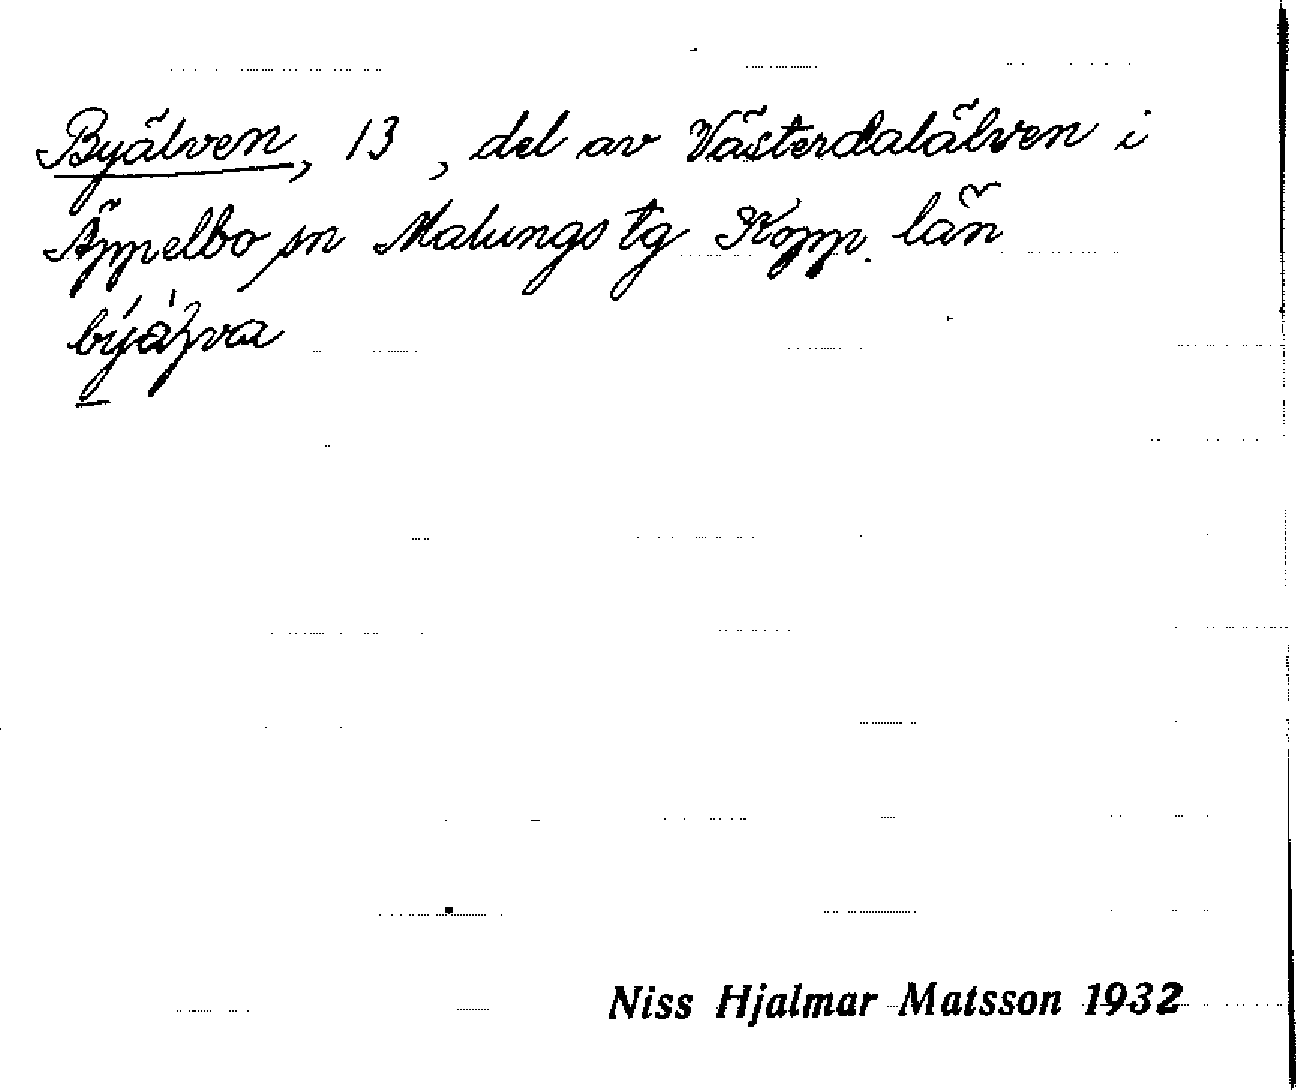 Byälven, 13, del av Västerdalälven i
Äppelbo sn Malungs tg Kopp. län
Niss Hjalmar Matsson 1932